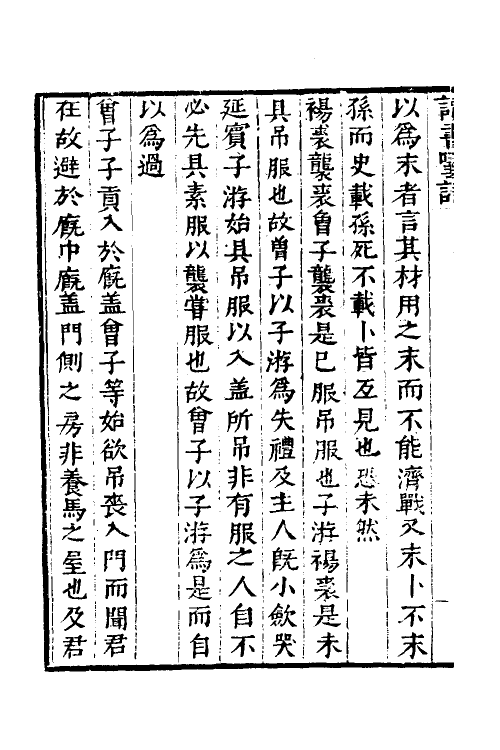 以為末者言其材用之末而不能濟戰又末卜不末
孫而史載孫死不載卜皆互見也恐未然
裼裘襲裘曾子襲裘是已服吊服也子游裼裘是未
具吊服也故曾子以子游為失禮及主人旣小歛哭
延賓子游始具吊服以入盖所吊非有服之人自不
必先具素服以襲甞服也故曾子以子游為是而自
以為過
曾子子貢入於廐盖曾子等始欲吊喪入門而聞君
在故避於廐中廐盖門側之房非養馬之屋也及君